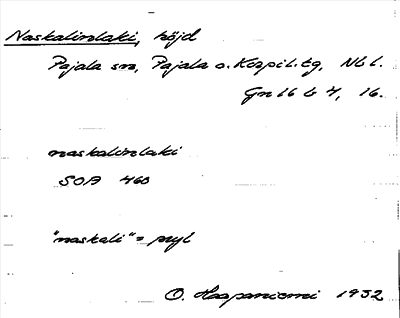 Naskalinlaki, höjd
Pajala sn, Pajala o. Korpil. tg, Nb l.
Gn 16 b 4, 16.
naskalinlaki
SOA 460
"naskali" = pryl
O. Haapaniemi 1932